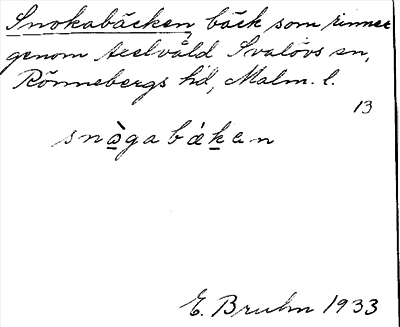 Snokabäcken, bäck som rinner
genom Axelvåld Svalövs sn,
Rönnebergs hd, Malm. l.
13
snɔ̀gabǽken
E. Bruhn 1933